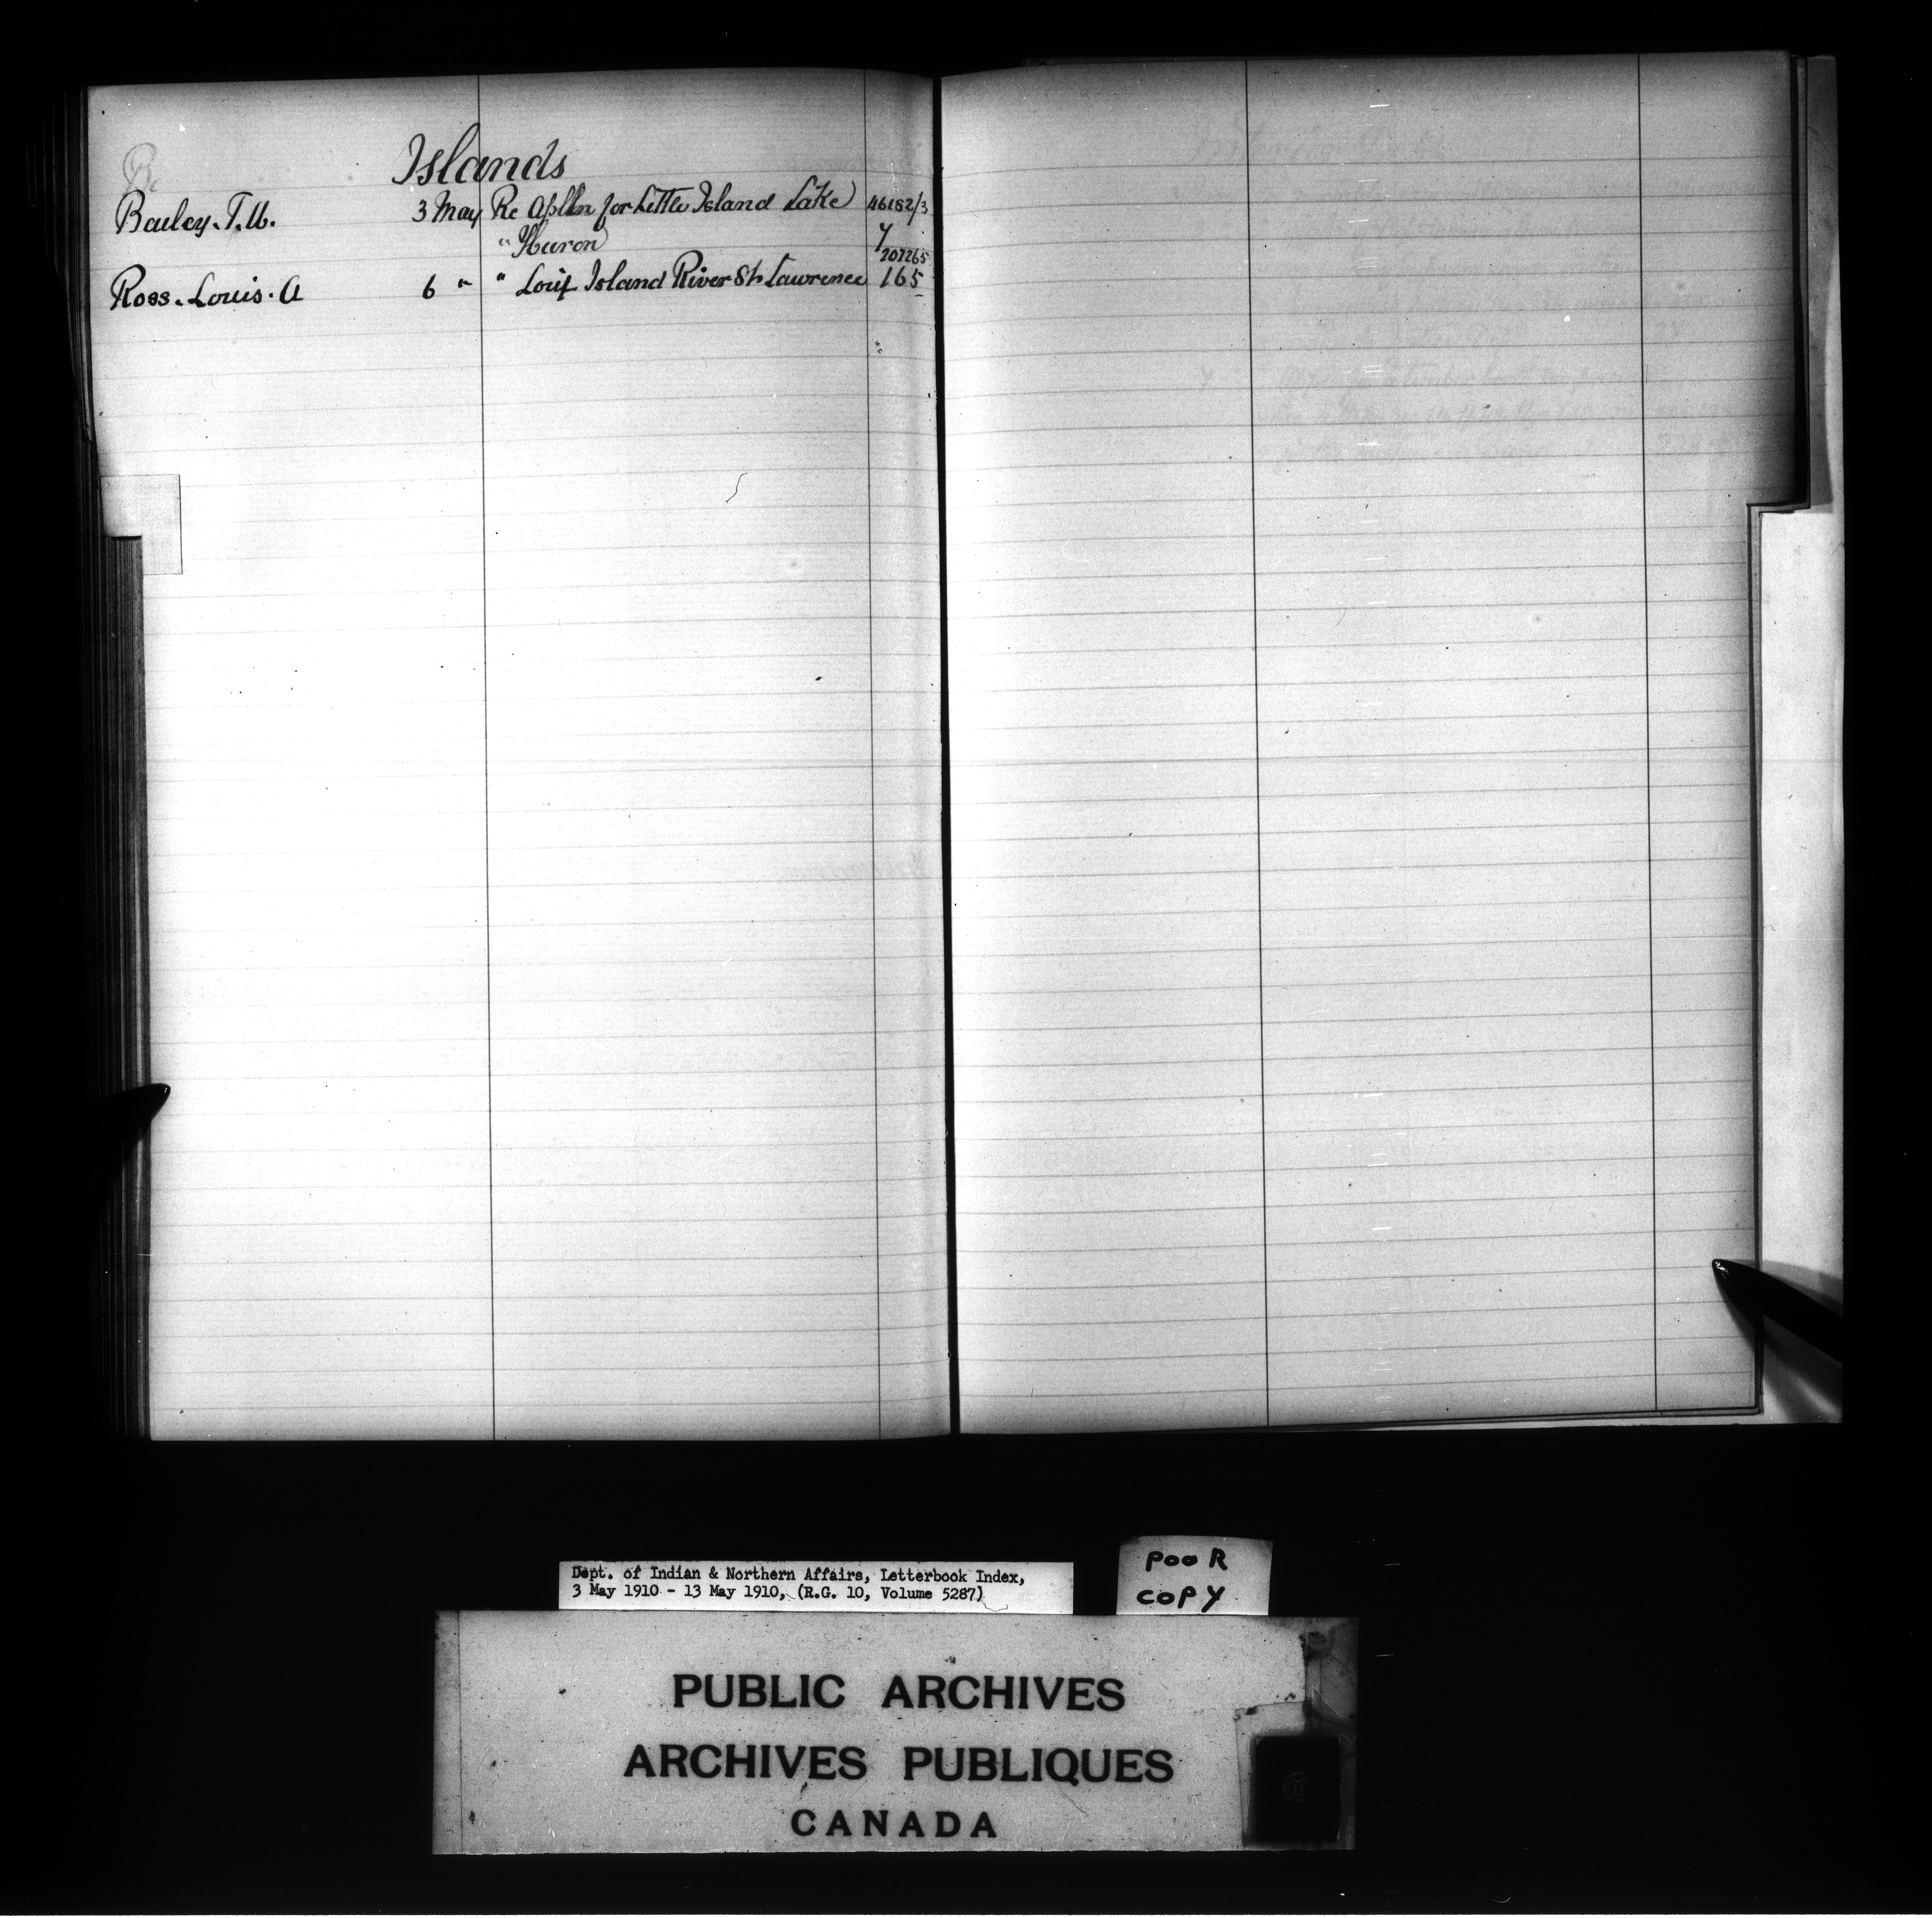 Islands
Bailey. T. W. 3 May Re Appln for Little Island Lake 46182/3
" Huron 7
207265
Ross. Louis. A 6 " " Island River St. Lawrence 165
Dept. of Indian & Northern Affairs, Letterbook Index,
3 May 1910 - 13 May 1910, (R.G. 10, Volume 5287)
POOR
COPY
PUBLIC ARCHIVES
ARCHIVES PUBLIQUES
CANADA